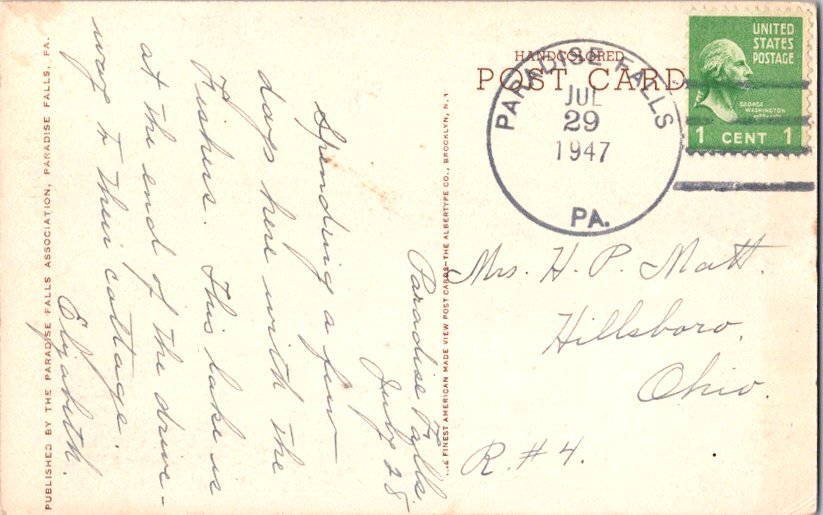 PUBLISHED BY THE PARADISE FALLS ASSOCIATION, PARADISE FALLS, PA.
Paradise Falls
July 28
Spending a few
days here with the
Fishers. This lake is
at the end of the drive-
way to their cottage.
Elizabeth.
FINEST AMERICAN MADE VIEW POST CARDS—THE ALBERTYPE CO., BROOKLYN, N.Y.
HANDCOLORED
POST CARD
PARADISE FALLS
JUL
29
1947
PA.
UNITED
STATES
POSTAGE
GEORGE
WASHINGTON
1 CENT 1
Mrs. H. P. Matt.
Hillsboro,
Ohio.
R. #4.